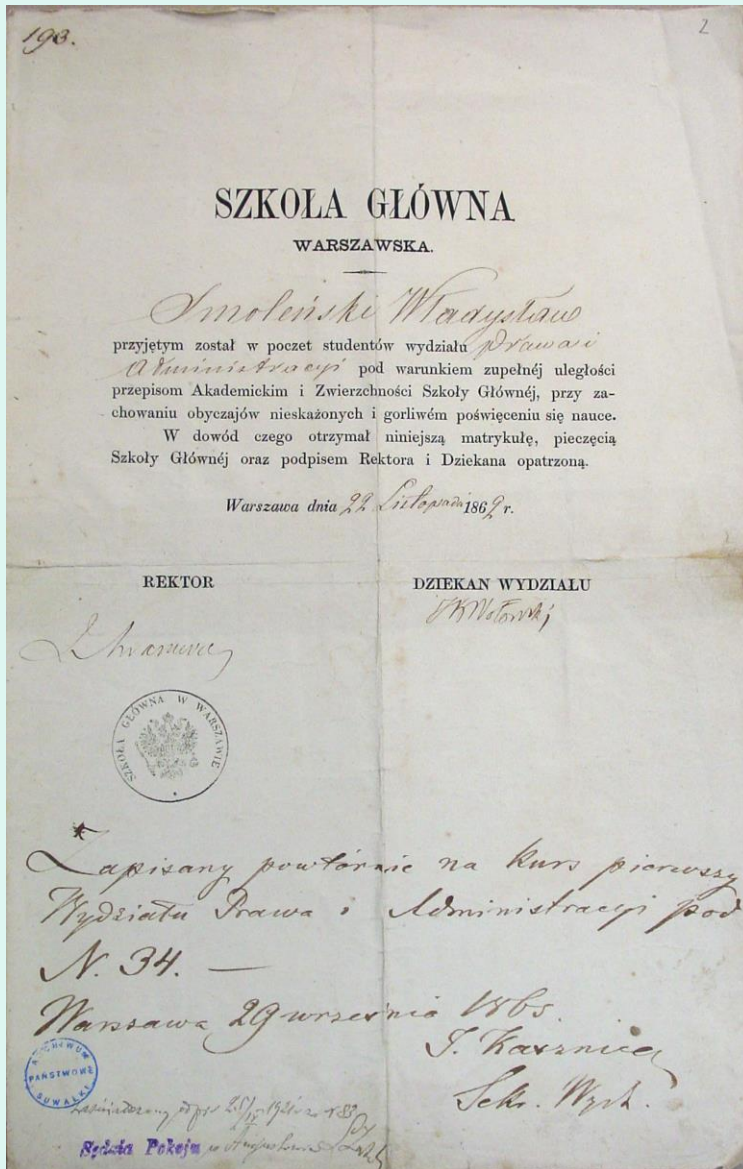 193.
2
SZKOŁA GŁÓWNA
WARSZAWSKA.
Smoleński Władysław
przyjętym został w poczet studentów wydziału Prawa i
Administracyi pod warunkiem zupełnéj uległości
przepisom Akademickim i Zwierzchności Szkoły Głównéj, przy za-
chowaniu obyczajów nieskażonych i gorliwém poświęceniu się nauce.
W dowód czego otrzymał niniejszą matrykułę, pieczęcią
Szkoły Głównéj oraz podpisem Rektora i Dziekana opatrzoną.
Warszawa dnia 22 Listopada 1862 r.
REKTOR
DZIEKAN WYDZIAŁU
JKWołowski
SZKOŁA GŁÓWNA W WARSZAWIE
Zapisany powtórnie na kurs pierwszy
Wydziału Prawa i Administracyi pod
N. 34. —
Warszawa 29 września 1865.
J. Kasznica
Sekr. Wydz.
ARCHIWUM
PAŃSTWOWE
SUWAŁKI
Sędzia Pokoju w Augustowie